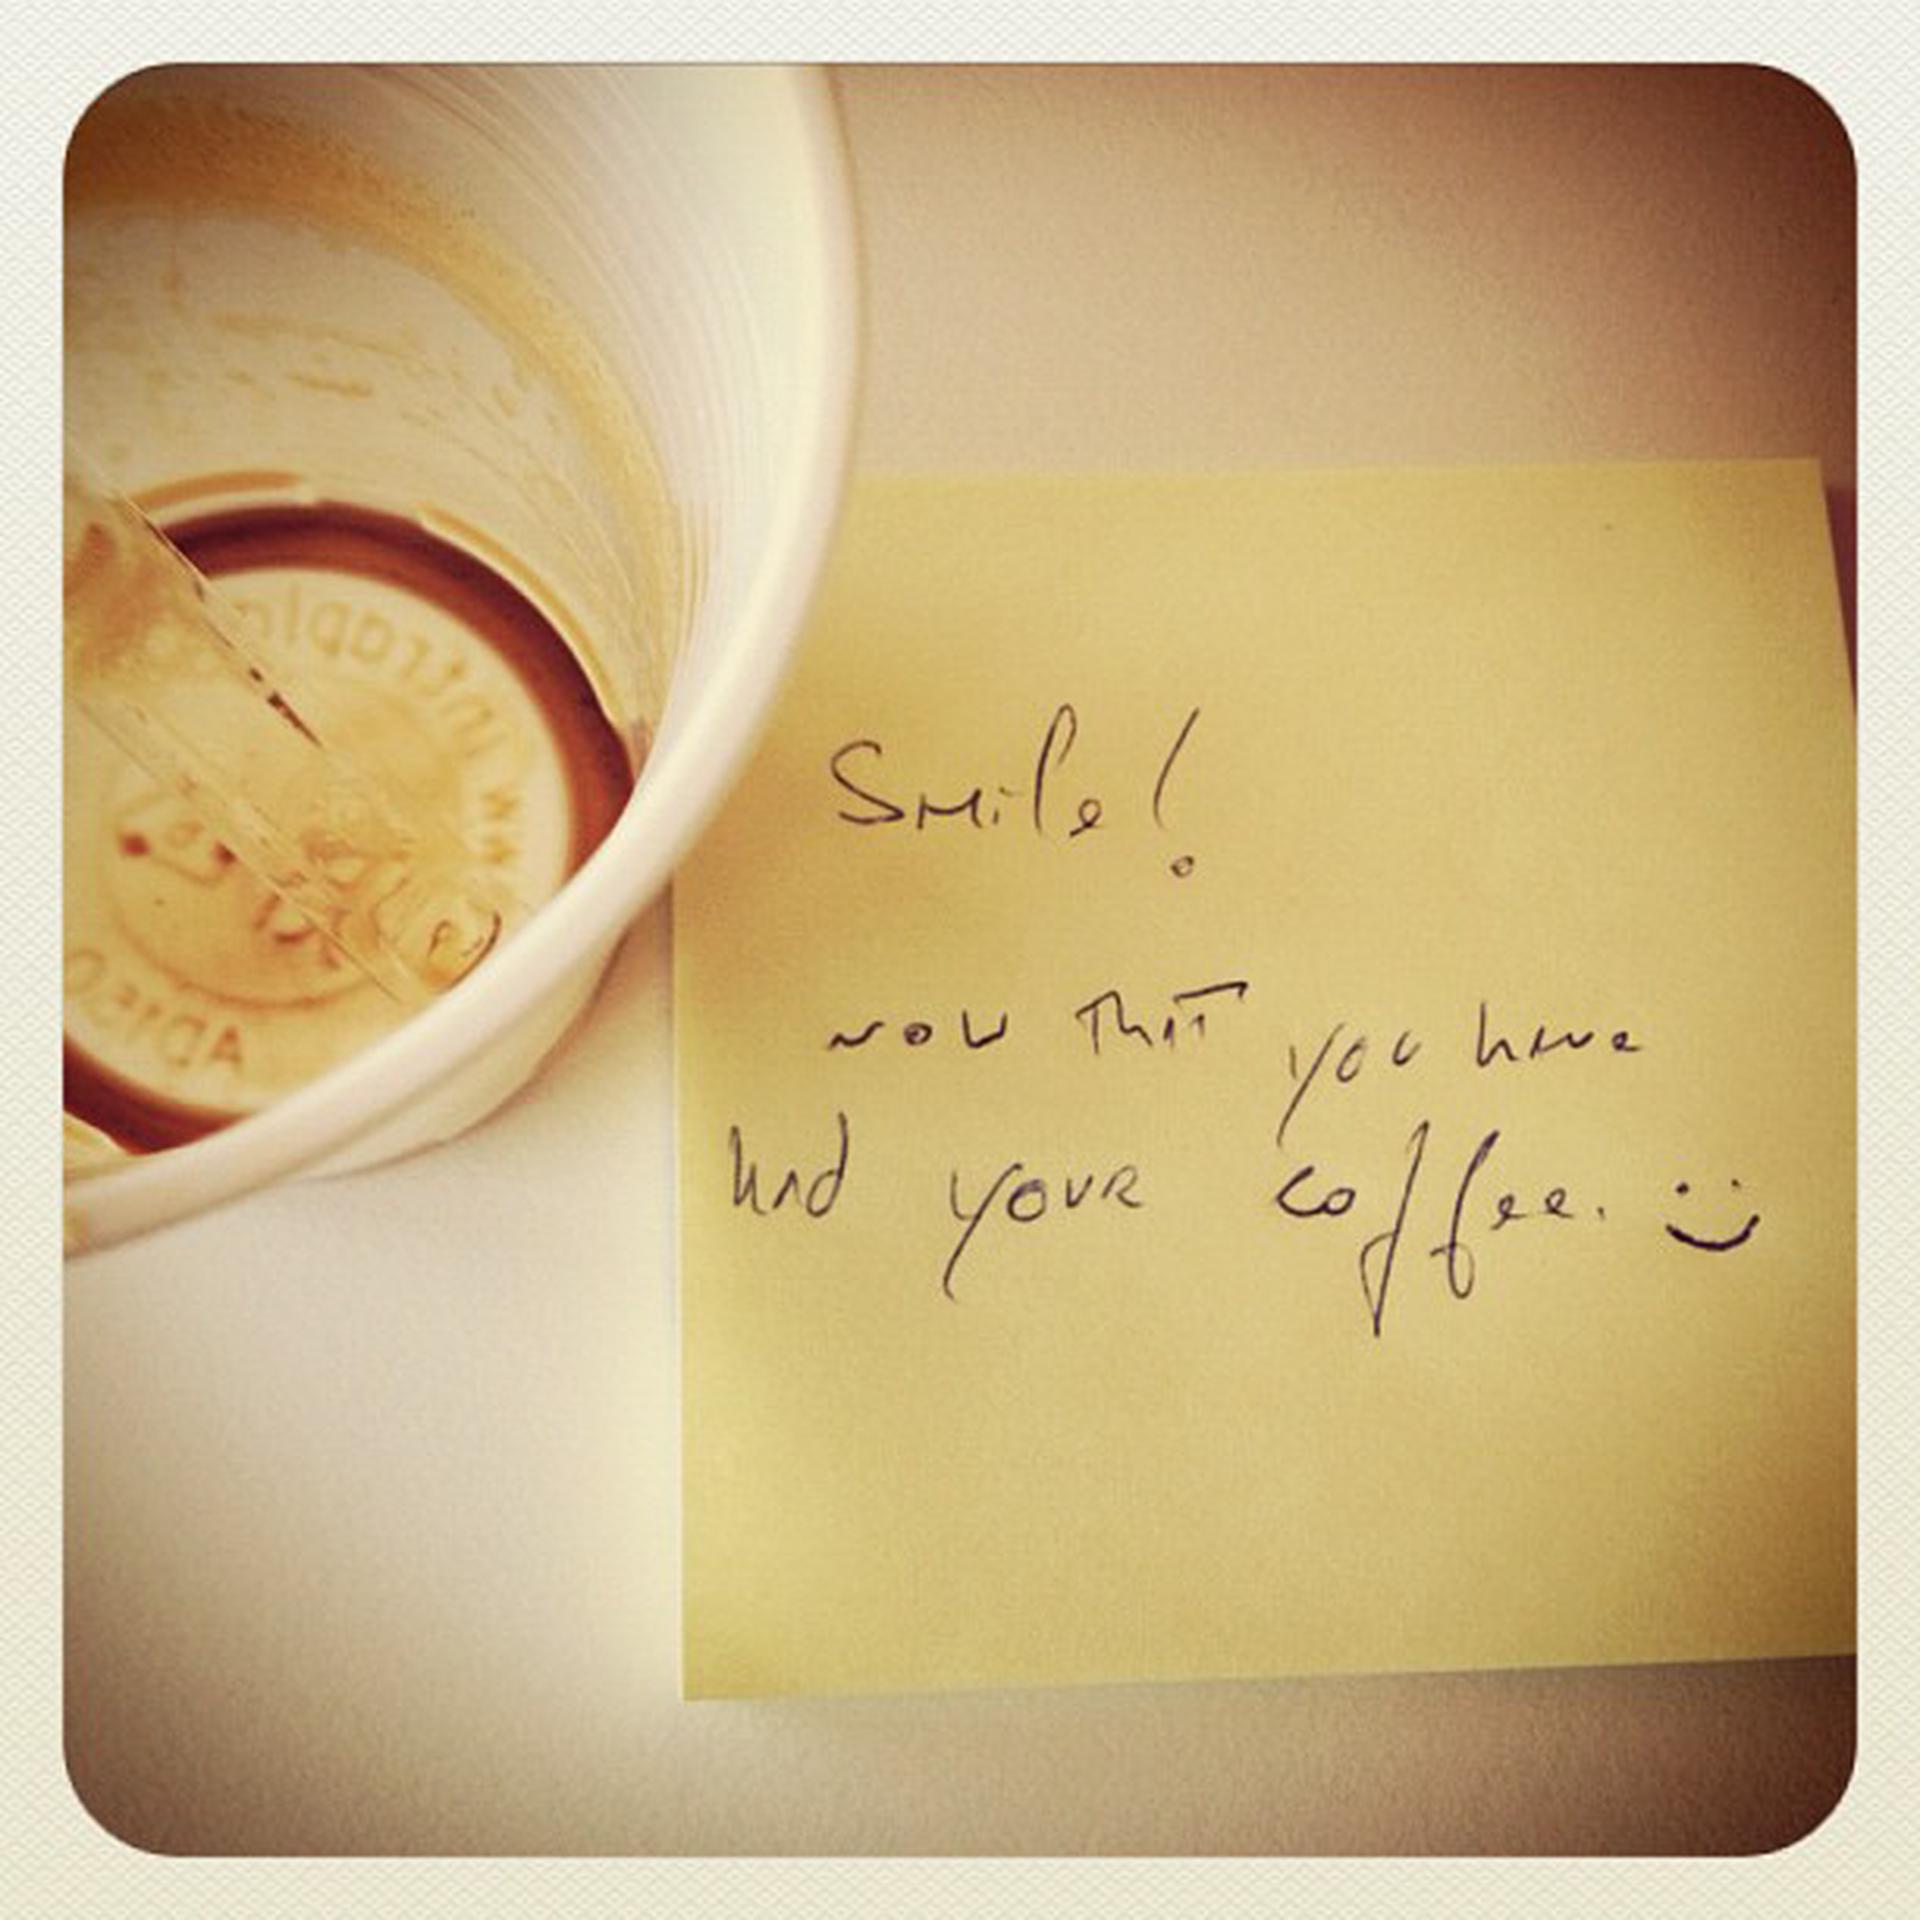 Smile!
now that you have
had your coffee. :)